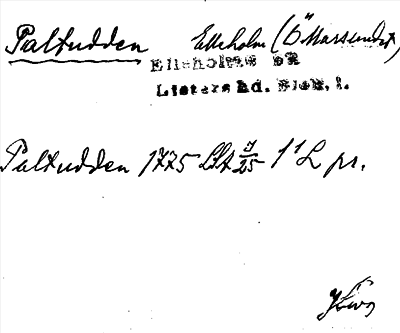 Paltudden Elleholm (Ö Massundet)
Elleholms sn
Listers hd. Blek. l.
Paltudden 1775 Llt 9/25 1¹ L pr.